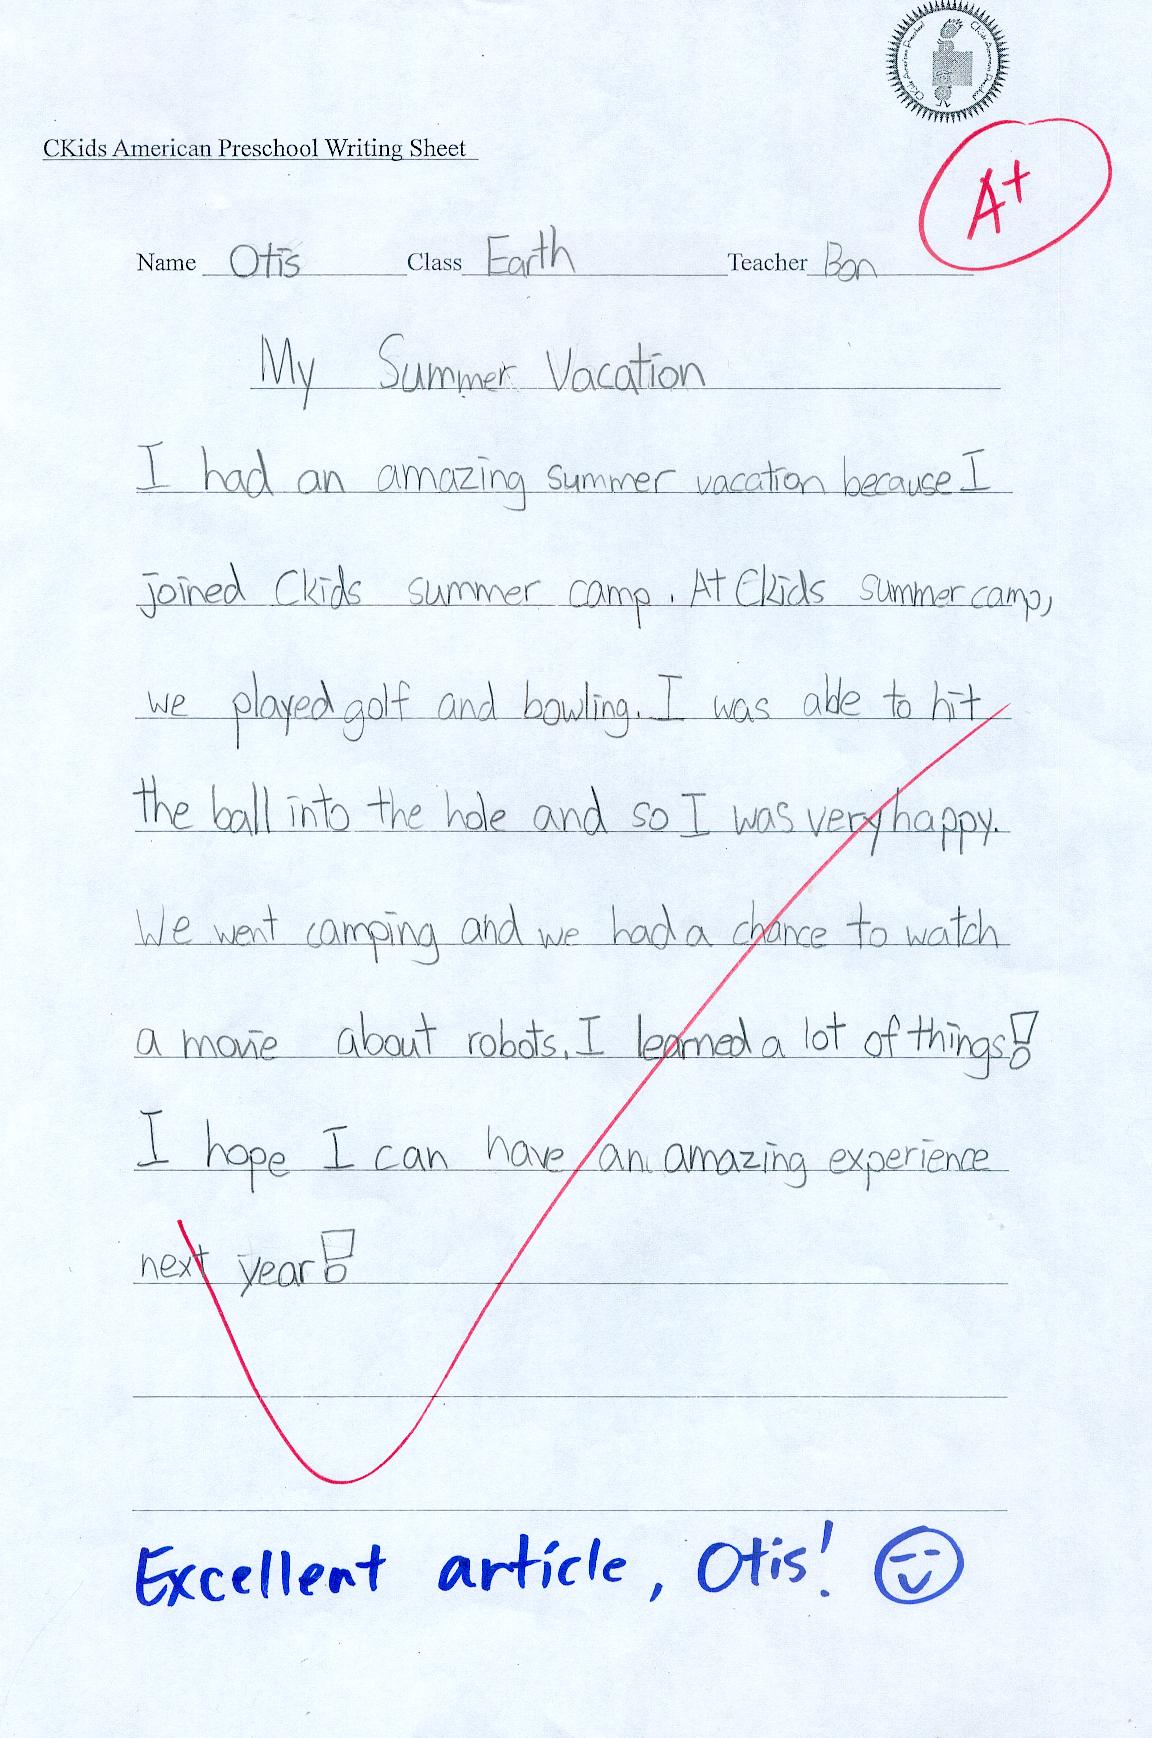 CKids American Preschool
CKids American Preschool
CKids American Preschool Writing Sheet
A+
Name Otis Class Earth Teacher Bon
My Summer Vacation
I had an amazing summer vacation because I
joined Ckids summer camp. At Ckids summer camp,
we played golf and bowling. I was able to hit
the ball into the hole and so I was very happy.
We went camping and we had a chance to watch
a movie about robots. I learned a lot of things!
I hope I can have an amazing experience
next year!
Excellent article, Otis!